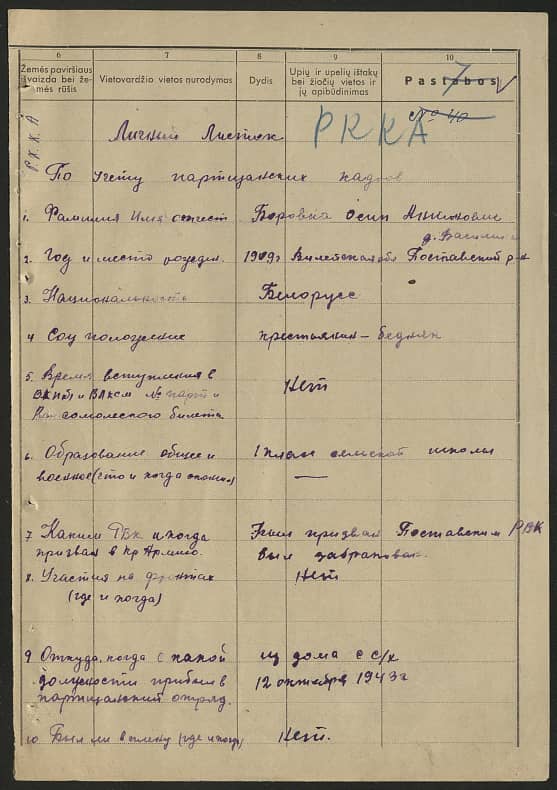 6 7 8 9 10
Žemės paviršiaus išvaizda bei žemės rūšis
Vietovardžio vietos nurodymas
Dydis
Upių ir upelių ištakų bei žiočių vietos ir jų apibūdinimas
Pastabos
7 V
Р.К.К.А
Личный Листок
PRKA
№ 40
По учету партизанских кадров
1. Фамилия имя отчест Боровка Осип
д. Васили
2. Год и место рожден. 1909г Вилейская обл Поставский р-н
3. Национальность Белорусс
4 Соц положение крестьянин - бедняк
5. Время вступления в
ВКПб и ВЛКСМ № парт и
Комсомолеского билета
Нет
6. Образование общее и 1 клас сельской школы
военное (что и когда окончил) —
7 Каким РВК и когда был призван Поставским РВК
призван в Кр Армию. был забракован.
8. Участия на фронтах Нет
(где и когда)
9 Откуда, когда с какой из дома с с/х
должности прибыл в 12 октября 1943г
партизанский отряд.
10. Был ли в плену (где и когда) Нет.